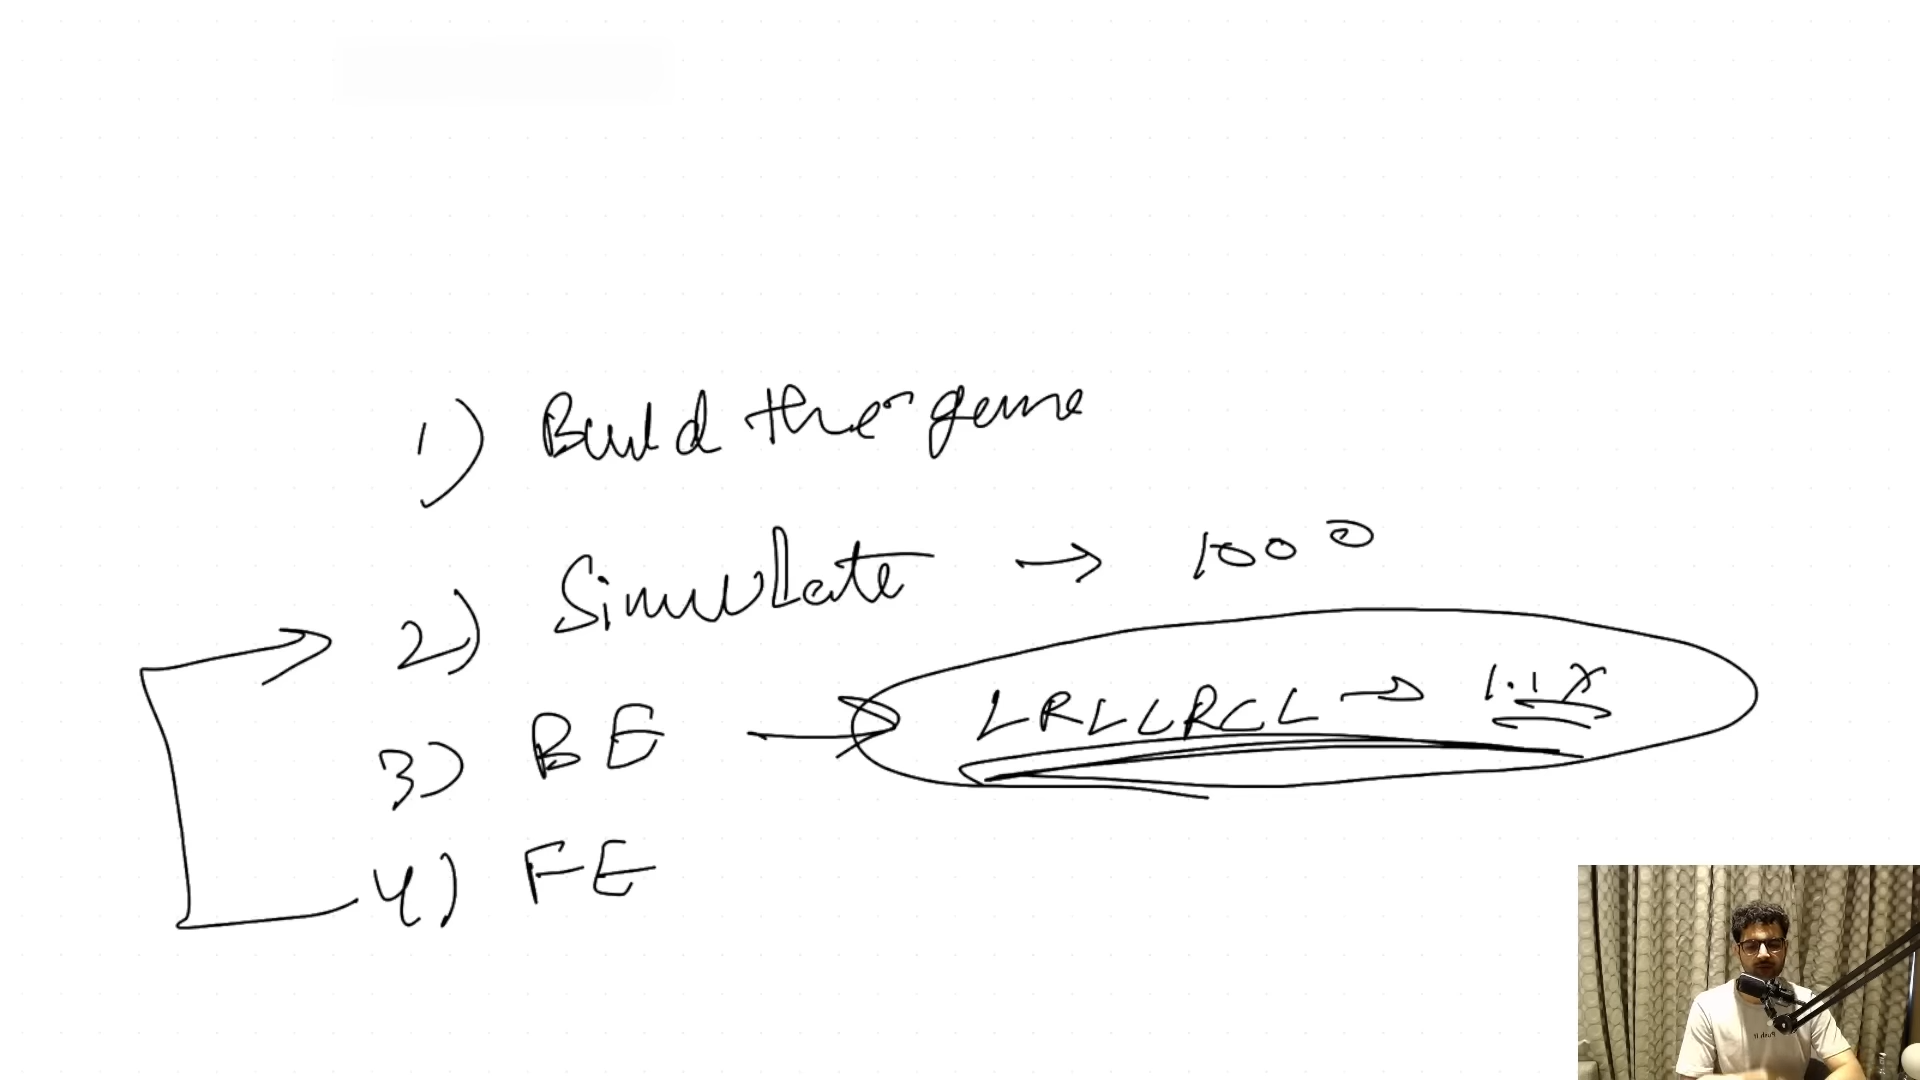 1) Build the game
2) Simulate → 1000
3) BE → LRLLRLL → 1.1x
4) FE